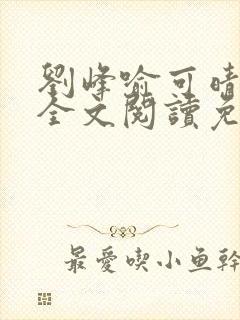 劉峰喻可晴
全文閱讀免
最愛喫小魚幹